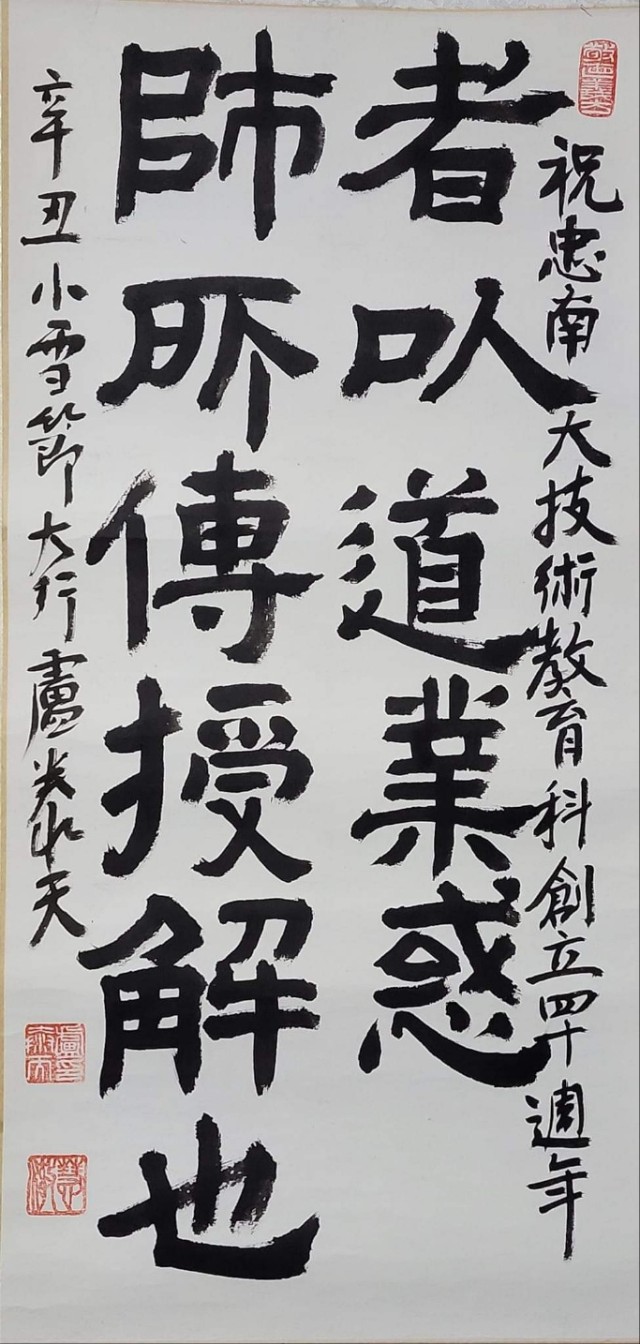 祝忠南大技術教育科創立四十週年
師者
所以
傳道
授業
解惑
也
辛丑小雪節大行盧泰天